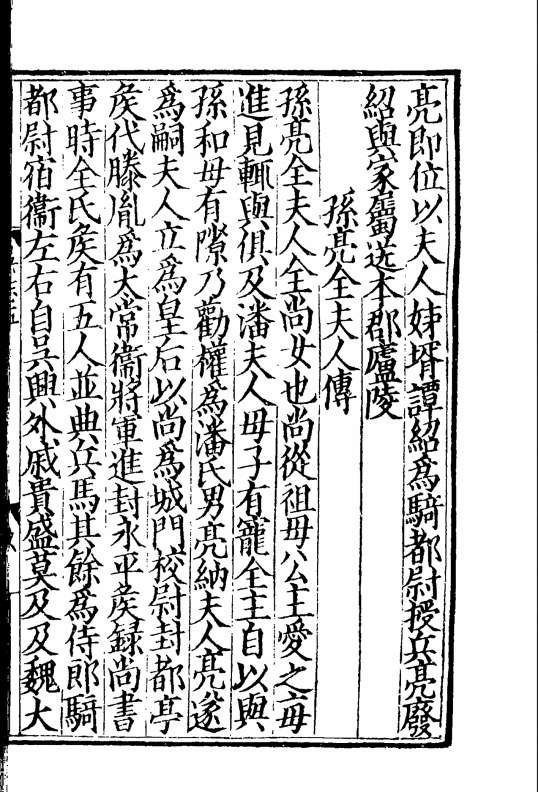 亮即位以夫人姊壻譚紹爲騎都尉授兵亮廢
紹與家屬送本郡廬陵
孫亮全夫人傳
孫亮全夫人全尚女也尚從祖母公主愛之每
進見輒與俱及潘夫人母子有寵全主自以與
孫和母有隙乃勸權爲潘氏男亮納夫人亮遂
爲嗣夫人立爲皇后以尚爲城門校尉封都亭
矦代滕胤爲太常衞將軍進封永平矦録尚書
事時全氏矦有五人並典兵馬其餘爲侍郎騎
都尉宿衞左右自吳興外戚貴盛莫及及魏大